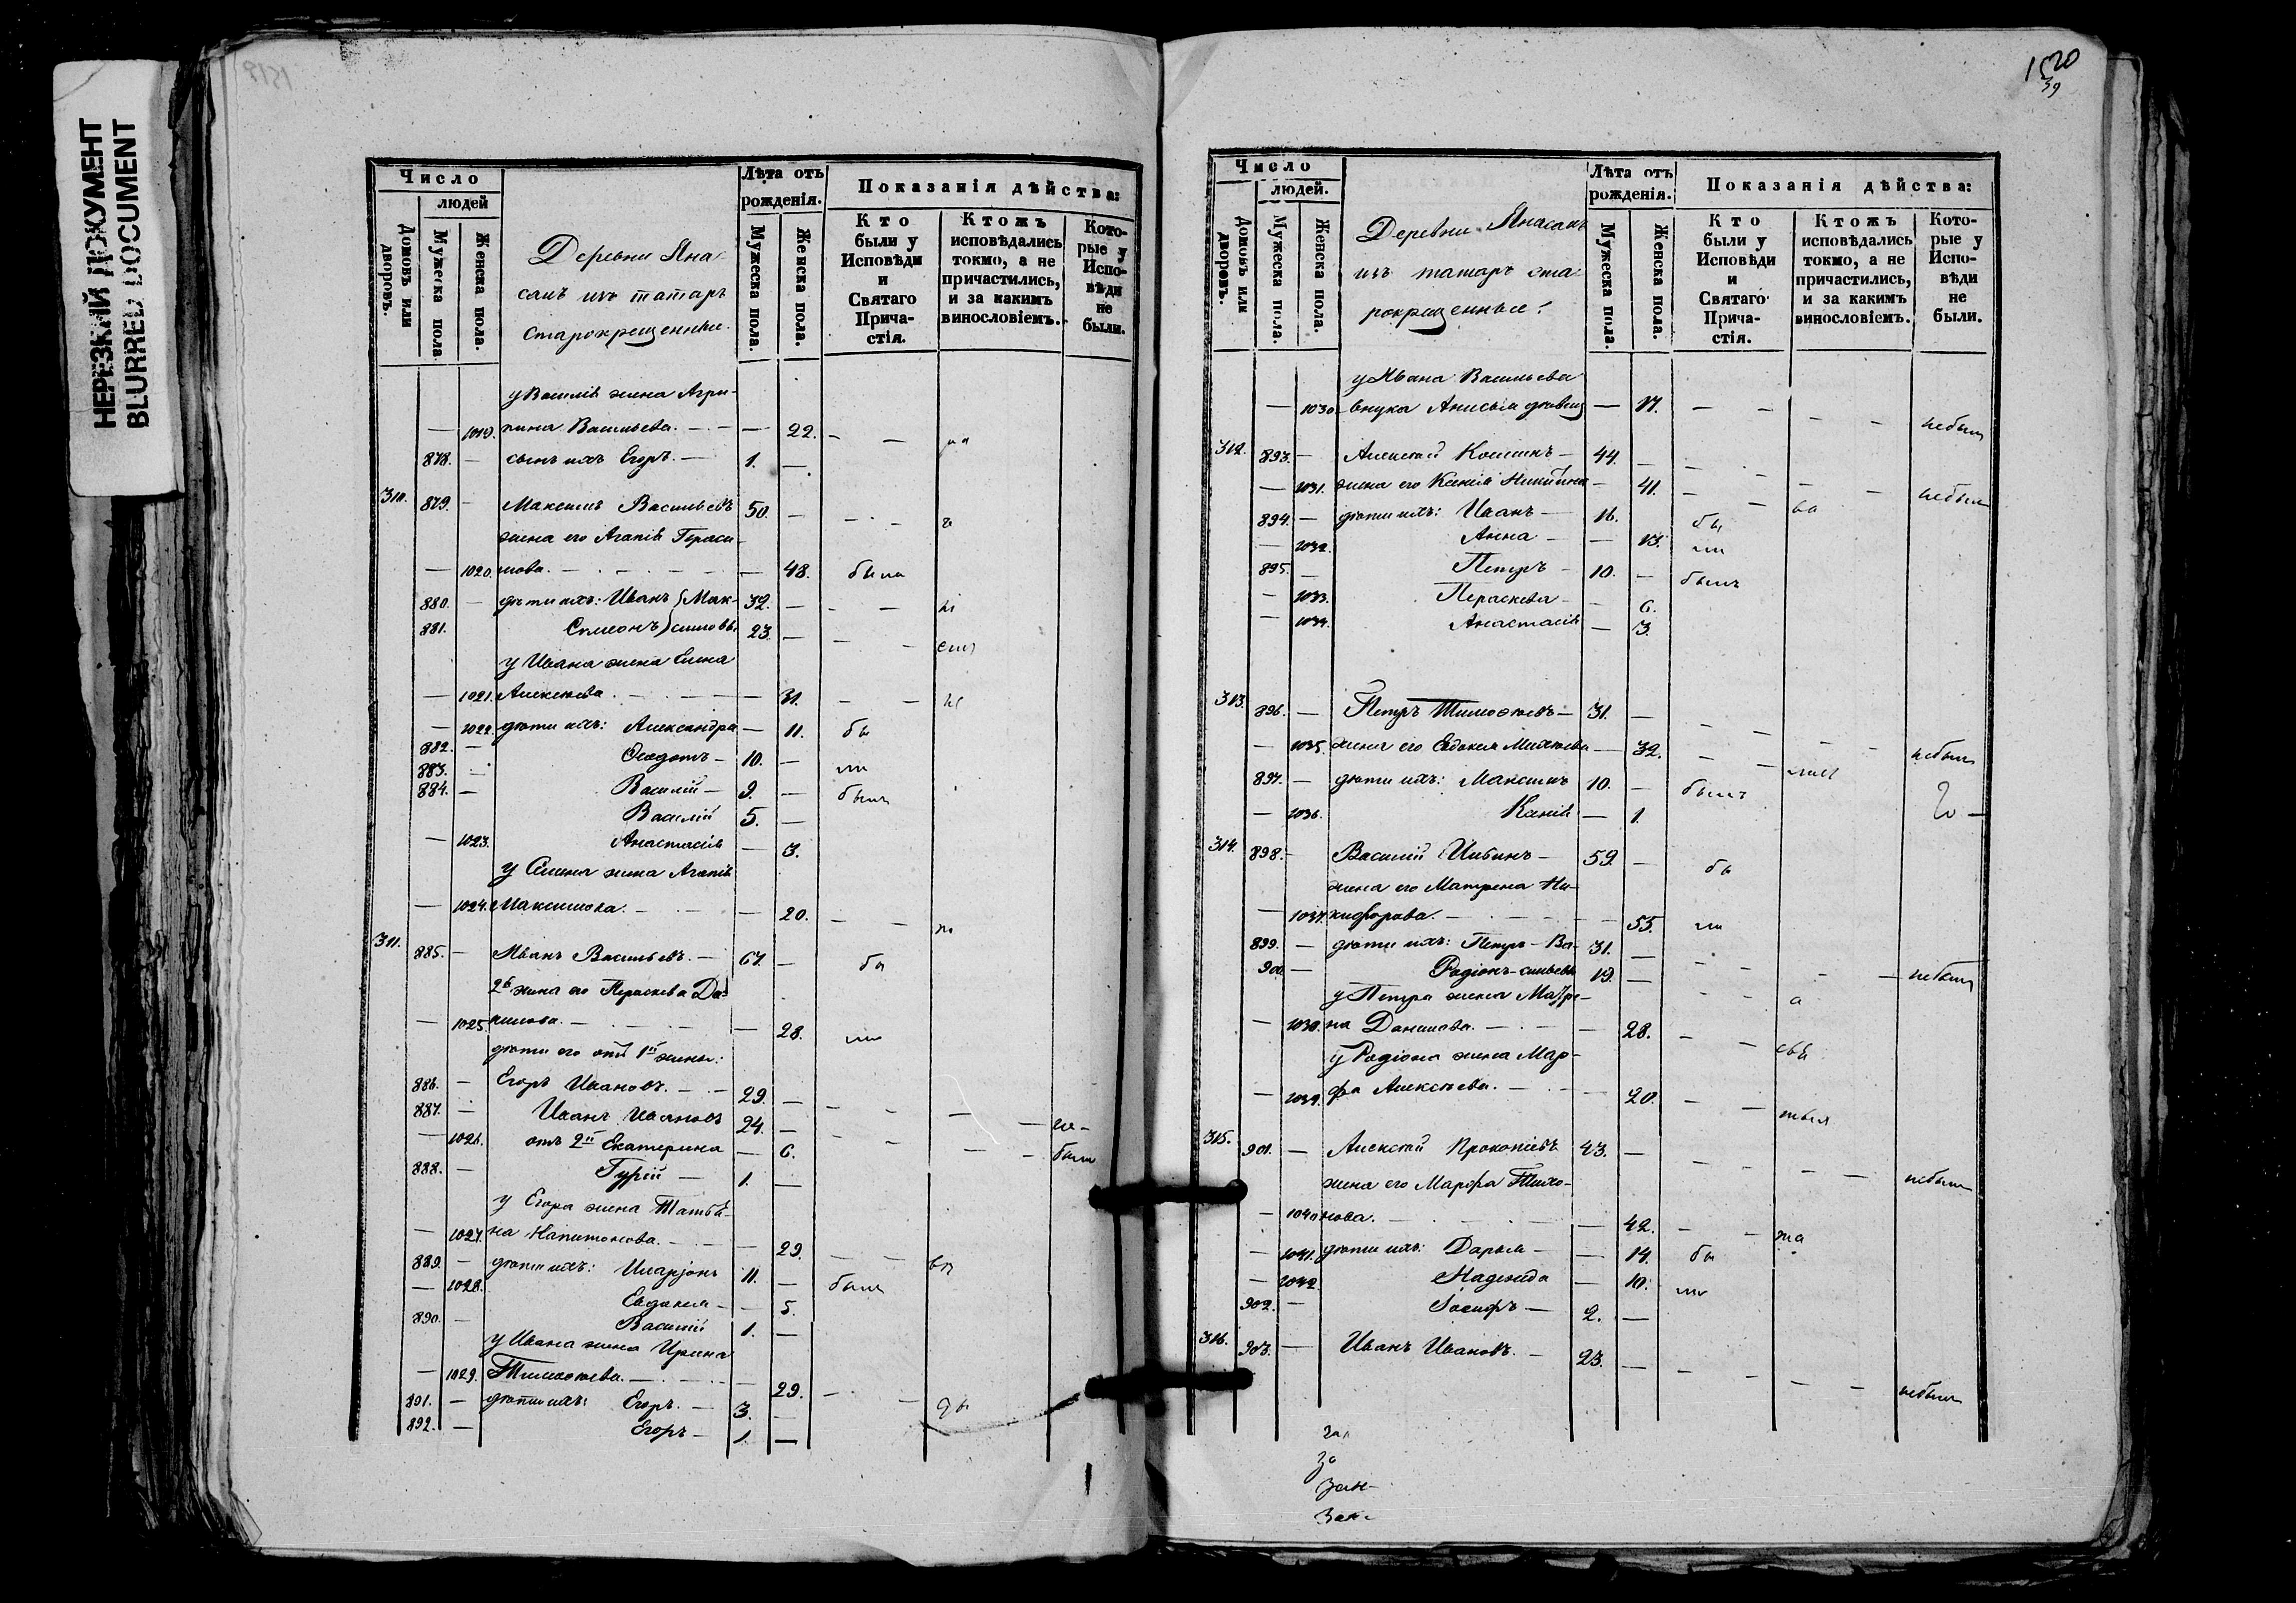 НЕРЕЗКИЙ ДОКУМЕНТ
BLURRED DOCUMENT
Число
людей
Домовъ или дворовъ.
Мужеска пола
Женска пола.
Деревни Яна-
салъ изъ татаръ
Старокрещенные.
Лѣта отъ рожденія.
Мужеска пола.
Женска пола.
Показанія дѣйства:
Кто были у Исповѣди и Святаго Причастія.
Ктожъ исповѣдались токмо, а не причастились, и за какимъ винословіемъ.
Которые у Исповѣди не были.
у Василія жена Агри-
— 1019. пина Васильева. — — 22. — —
878. — сынъ ихъ Егоръ. — 1. —
310. 879. — Максимъ Васильевъ 50. —
жена его Агапія Гераси-
— 1020. мова. — — 48. была
880. — дѣти ихъ: Иванъ } Мак- 32. —
881. Симеонъ } симовы 23. —
у Ивана жена Елена
— 1021. Алексѣева. — — 31. — —
— 1022. дѣти ихъ: Александра — 11. бы
882. — Ѳеодотъ — 10. — ли
883. — Василій — 9. — былъ
884. — Василій 5. —
— 1023. Анастасія — 3.
у Семена жена Агапія
— 1024. Максимова. — — 20. — —
311. 885. — Иванъ Васильевъ. — 67. — бы
2я жена его Пераскева Да-
— 1025. нилова. — — 28. ли
дѣти его отъ 1й жены:
886. — Егоръ Ивановъ. — 29. —
887. — Иванъ Ивановъ 24. —
— 1026. отъ 2й Екатерина — 6.
888. — Гурій — 1. —
у Егора жена Татья-
— 1027. на Капитонова. — — 29. — —
889. — дѣти ихъ: Иларіонъ 11. — былъ
— 1028. Евдокія — — 5.
890. — Василій 1. —
у Ивана жена Ирина
— 1029. Тимоѳеева. — — 29. — —
891. — дѣти ихъ: Егоръ. — 3. —
892. — Егоръ — 1. —
1520
39
Число
людей.
Домовъ или дворовъ.
Мужеска пола.
Женска пола.
Деревни Янасалъ
изъ татаръ ста-
рокрещенные:
Лѣта отъ рожденія.
Мужеска пола.
Женска пола.
Показанія дѣйства:
Кто были у Исповѣди и Святаго Причастія.
Ктожъ исповѣдались токмо, а не причастились, и за какимъ винословіемъ.
Которые у Исповѣди не были.
у Ивана Васильева
— 1030. внука Анисья — 17. — — — — небыла
312. 893. — Алексѣй — 44. —
— 1031. жена его Ксенія Никитина — 41. — — небыли
894. — дѣти ихъ: Иванъ — 16. бы
— 1032. Анна — — 13. ли
895. — Петръ — 10. — былъ
— 1033. Пераскева — — 6.
— 1034. Анастасія — 3.
313. 896. — Петръ Тимоѳеевъ — 31. —
— 1035. жена его Евдокія Михѣева — 32. небыли
897. — дѣти ихъ: Максимъ 10. — былъ
— 1036. Ксенія — 1.
314. 898. — Василій — 59. — бы
жена его Матрена Ни-
— 1037. кифорова. — — 55. ли
899. — дѣти ихъ: Петръ — Ва- 31. —
900. — Родіонъ — сильевы 19. — небыли
у Петра жена Матре-
— 1038. на Данилова. — — 28. — —
у Родіона жена Мар-
— 1039. фа Алексѣева. — — 20. — —
315. 901. — Алексѣй Прокопіевъ 43. — небыли
жена его Марфа Тихо-
— 1040. нова. — — 42. — —
— 1041. дѣти ихъ: Дарья — — 14. бы
— 1042. Надежда — 10. ли
902. — Іосифъ — 2. —
316. 903. — Иванъ Ивановъ. — 23. — — — — — небылъ